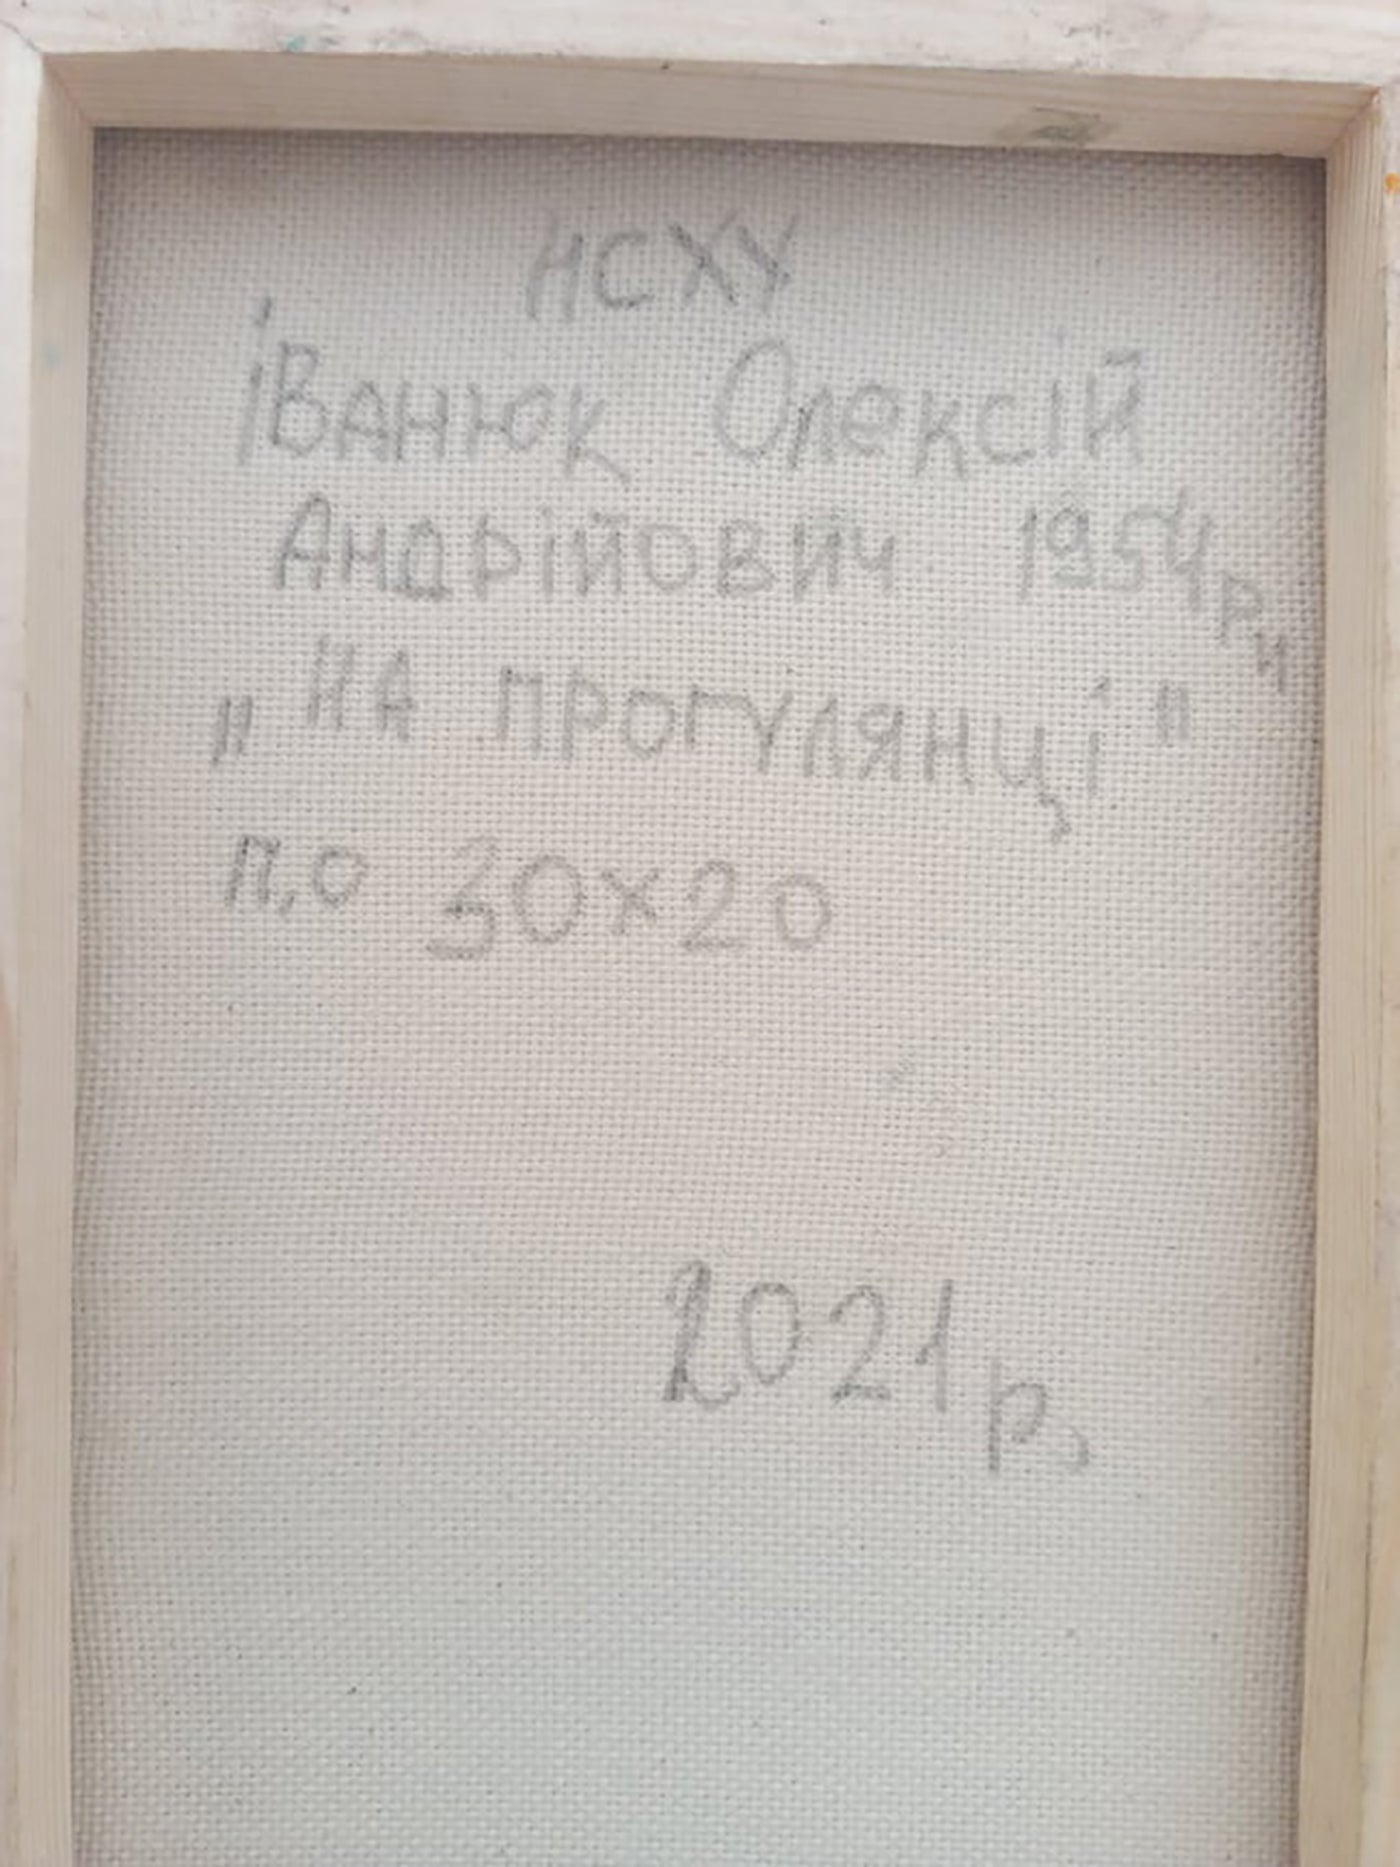 НСХУ
Іванюк Олексій
Андрійович 1954 р н
„ На прогулянці "
п.о 30х20
2021 р.